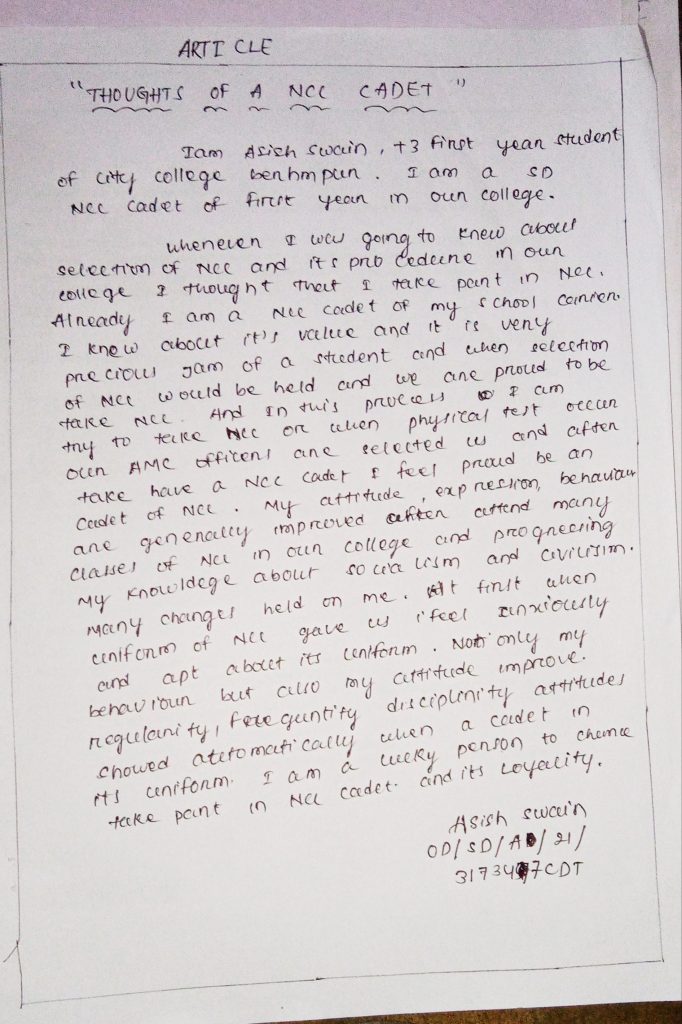 ARTICLE
"THOUGHTS OF A NCC CADET"
Iam Asish Swain, +3 first year student
of city college berhmpur. I am a SD
NCC Cadet of first year in our college.
whenever I was going to knew about
selection of NCC and its procedure in our
college I thought that I take part in NCC.
Already I am a NCC cadet of my school carrier.
I know about it's value and it is very
precious jam of a student and when selection
of NCC would be held and we are proud to be
take NCC. And In this process I am
try to take NCC or when physical test occur
our AMC officers are selected us and after
take have a NCC cadet I feel proud be an
Cadet of NCC. My attitude, expression, behaviour
are generally improved after attend many
classes of NCC in our college and progressing
My knowldege about socialism and civilisim.
Many changes held on me. At first when
uniform of NCC gave us i feel anxiously
and apt about its uniform. Not only my
behaviour but also my attitude improve.
regularity, disciplinity attitudes
showed automatically when a cadet in
its uniform. I am a lucky person to chance
take part in NCC cadet. and its Loyality.
Asish swain
OD/SD/A/21/
31734 7CDT